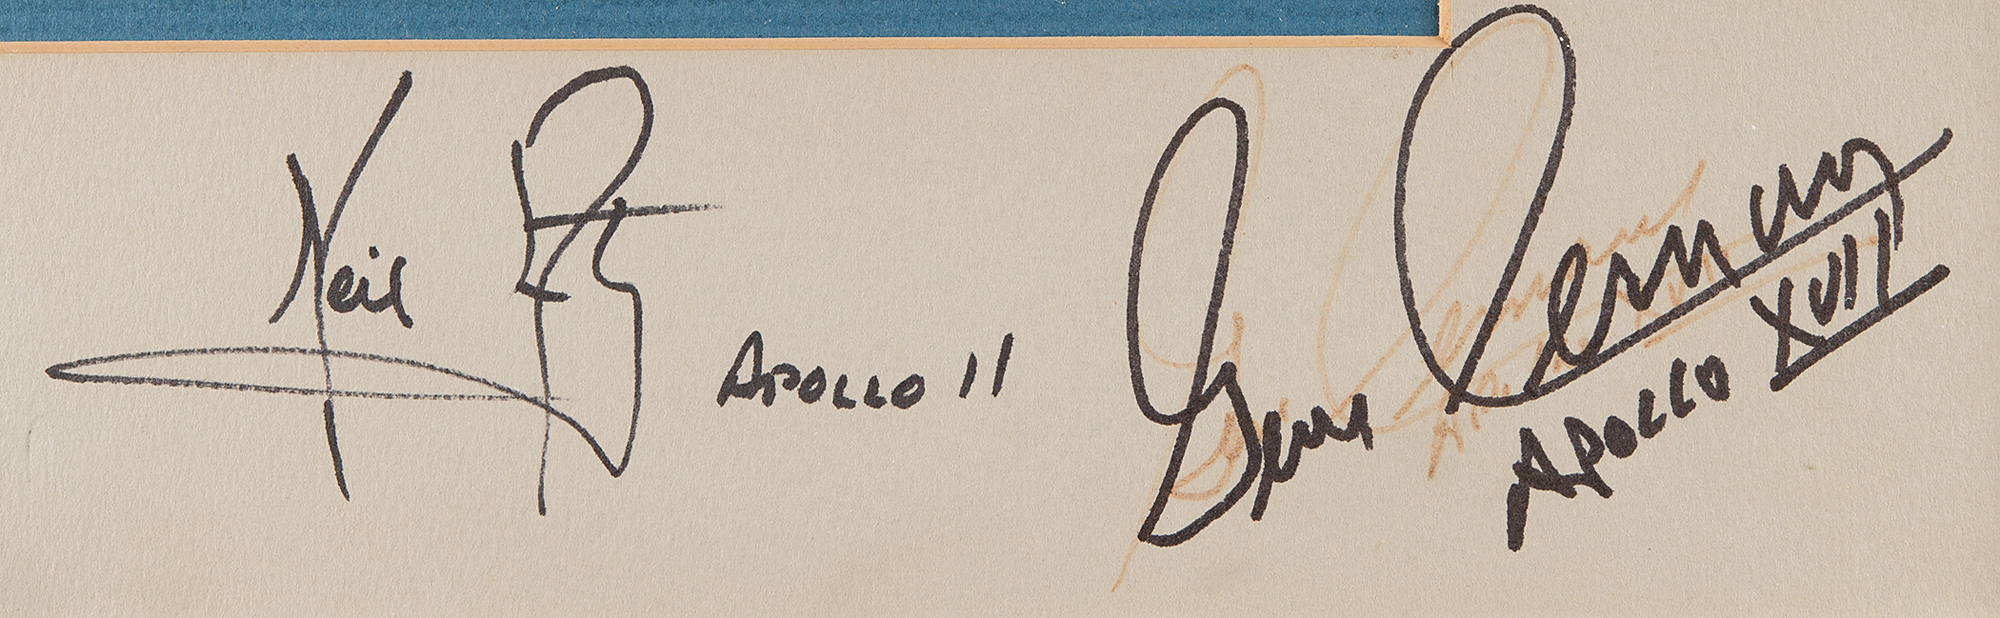 Neil
APOLLO 11
Gene Cernan
APOLLO XVII